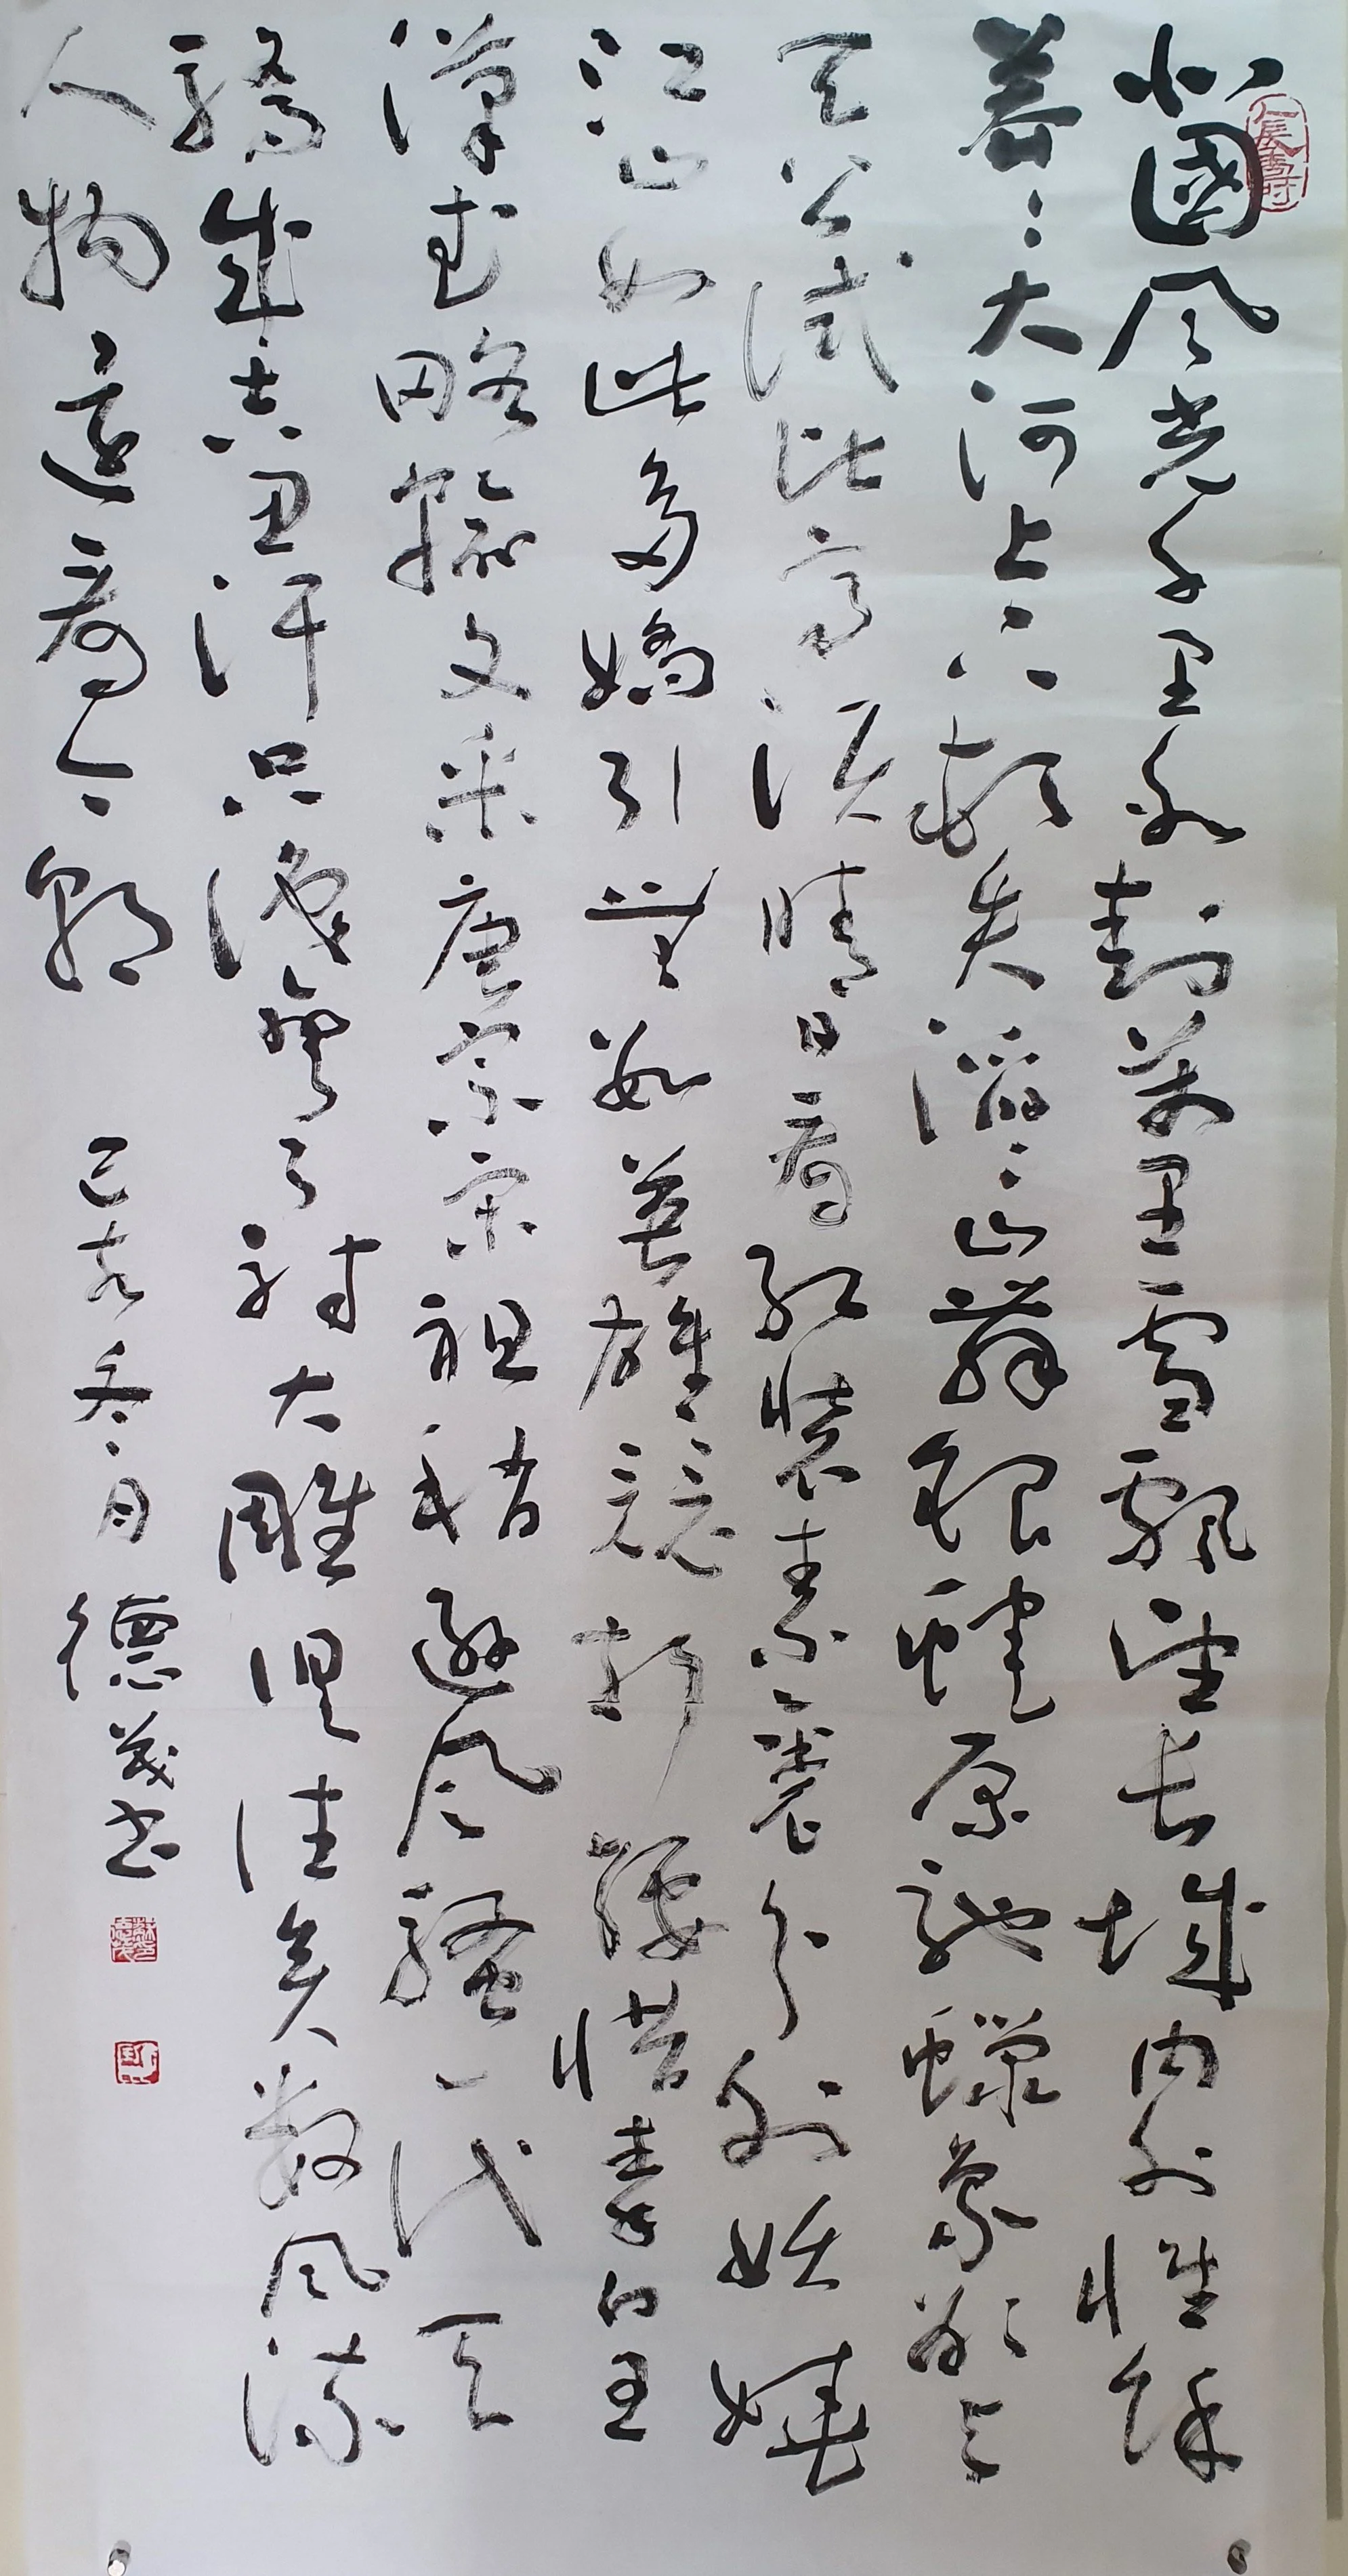 北國风光千里冰封萬里雪飄望长城内外惟餘
莽〻大河上下顿失滔〻山舞銀蛇原馳蠟象欲与
天公试比高须晴日看红装素裹分外妖娆
江山如此多嬌引無數英雄競折腰惜秦皇
漢武略輸文采唐宗宋祖稍遜风騷一代天
驕成吉思汗只識彎弓射大雕俱往矣数风流
人物還看今朝 己亥冬月 德茂书